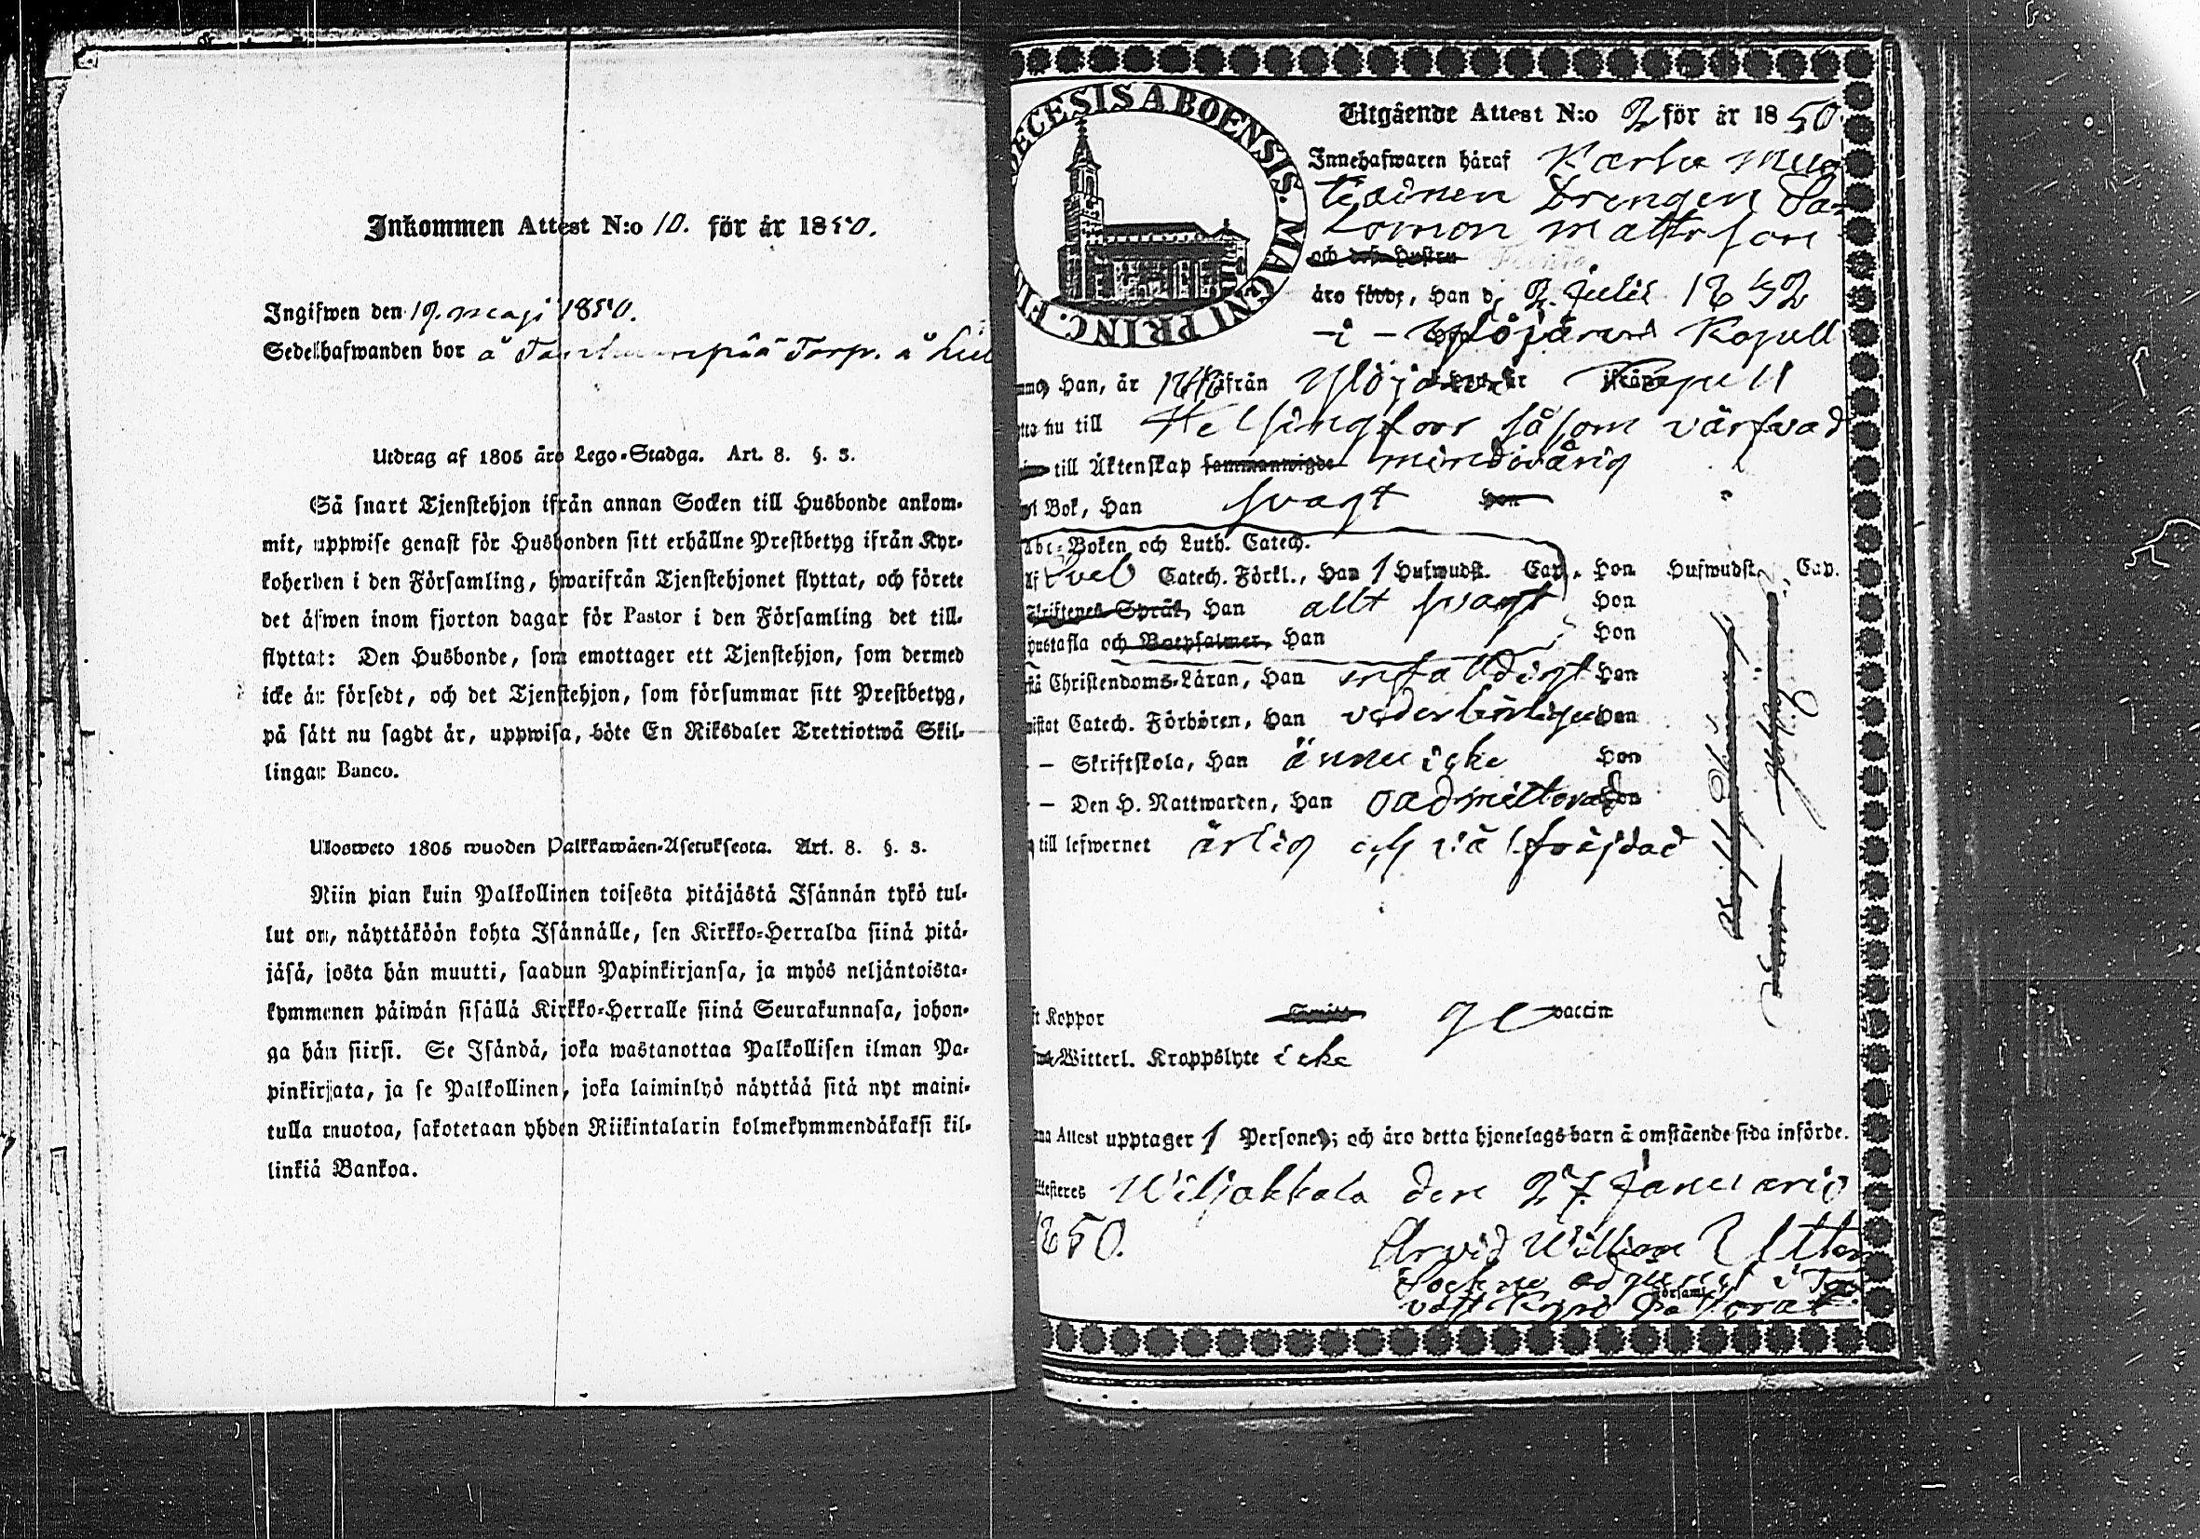 Inkommen Attest N:o 10. för år 1850.
Ingifwen den 19. maji 1850.
Sedelhafwanden bor å Torp. å
Utdrag af 1805 års Lego-Stadga. Art. 8. §. 3.
Så snart Tjenstehjon ifrån annan Socken till Husbonde ankom-
mit, uppwise genast för Husbonden sitt erhållne Prestbetyg ifrån Kyr-
koherden i den Församling, hwarifrån Tjenstehjonet flyttat, och förete
det äfwen inom fjorton dagar för Pastor i den Församling det till-
flyttat: Den Husbonde, som emottager ett Tjenstehjon, som dermed
icke är försedt, och det Tjenstehjon, som försummar sitt Prestbetyg,
på sätt nu sagdt är, uppwisa, böte En Riksdaler Trettiotwå Skil-
lingar Banco.
Ulosweto 1805 wuoden Palkkawäen-Asetuksesta. Art. 8. §. 3.
Niin pian kuin Palkollinen toisesta pitäjästä Isännän tykö tul-
lut on, näyttäköön kohta Isännälle, sen Kirkko-Herralda siinä pitä-
jäsä, josta hän muutti, saadun Papinkirjansa, ja myös neljäntoista-
kymmenen päiwän sisällä Kirkko-Herralle siinä Seurakunnasa, johon-
ga hän siirsi. Se Isändä, joka wastanottaa Palkollisen ilman Pa-
pinkirjata, ja se Palkollinen, joka laiminlyö näyttää sitä nyt maini-
tulla muotoa, sakotetaan yhden Riikintalarin kolmekymmendäkaksi kil-
linkiä Bankoa.
ECESIS ABOENSIS. MAGNI PRINC. FI
Utgående Attest N:o 2 för år 1850
Innehafwaren häraf
Drengen Sa-
lomon Mattsson
och dess Hustru
äro födde, Han d. 2. Julii 1832
i Ylöjärvi Kapell
Han, år ifrån Ylöjärvi Kapell
nu till Helsingfors såsom värfvad
till Äktenskap sammanwigde minderårig
Bok, Han svagt Hon
Abc-Boken och Luth. Catech.
Catech. Förkl., Han 1 Hufwudst. Cap. Hon Hufwudst. Cap.
Skriftenes Språk, Han allt svagt Hon
Hustafla och Botpsalmer, Han Hon
Christendoms-Läran, Han enfalldigt Hon
Catech. Förhören, Han vederbörligen Hon
— Skriftskola, Han ännu icke Hon
— Den H. Nattwarden, Han oadmitterad Hon
till lefwernet ärlig och välfräjdad
Koppor vaccin
Witterl. Kroppslyte icke
Attest upptager 1 Personer; och äro detta hjonelags barn å omstående sida införde.
Wiljakkala den 27 Januario
1850.
Arvid William
i
Kyro Pastorat